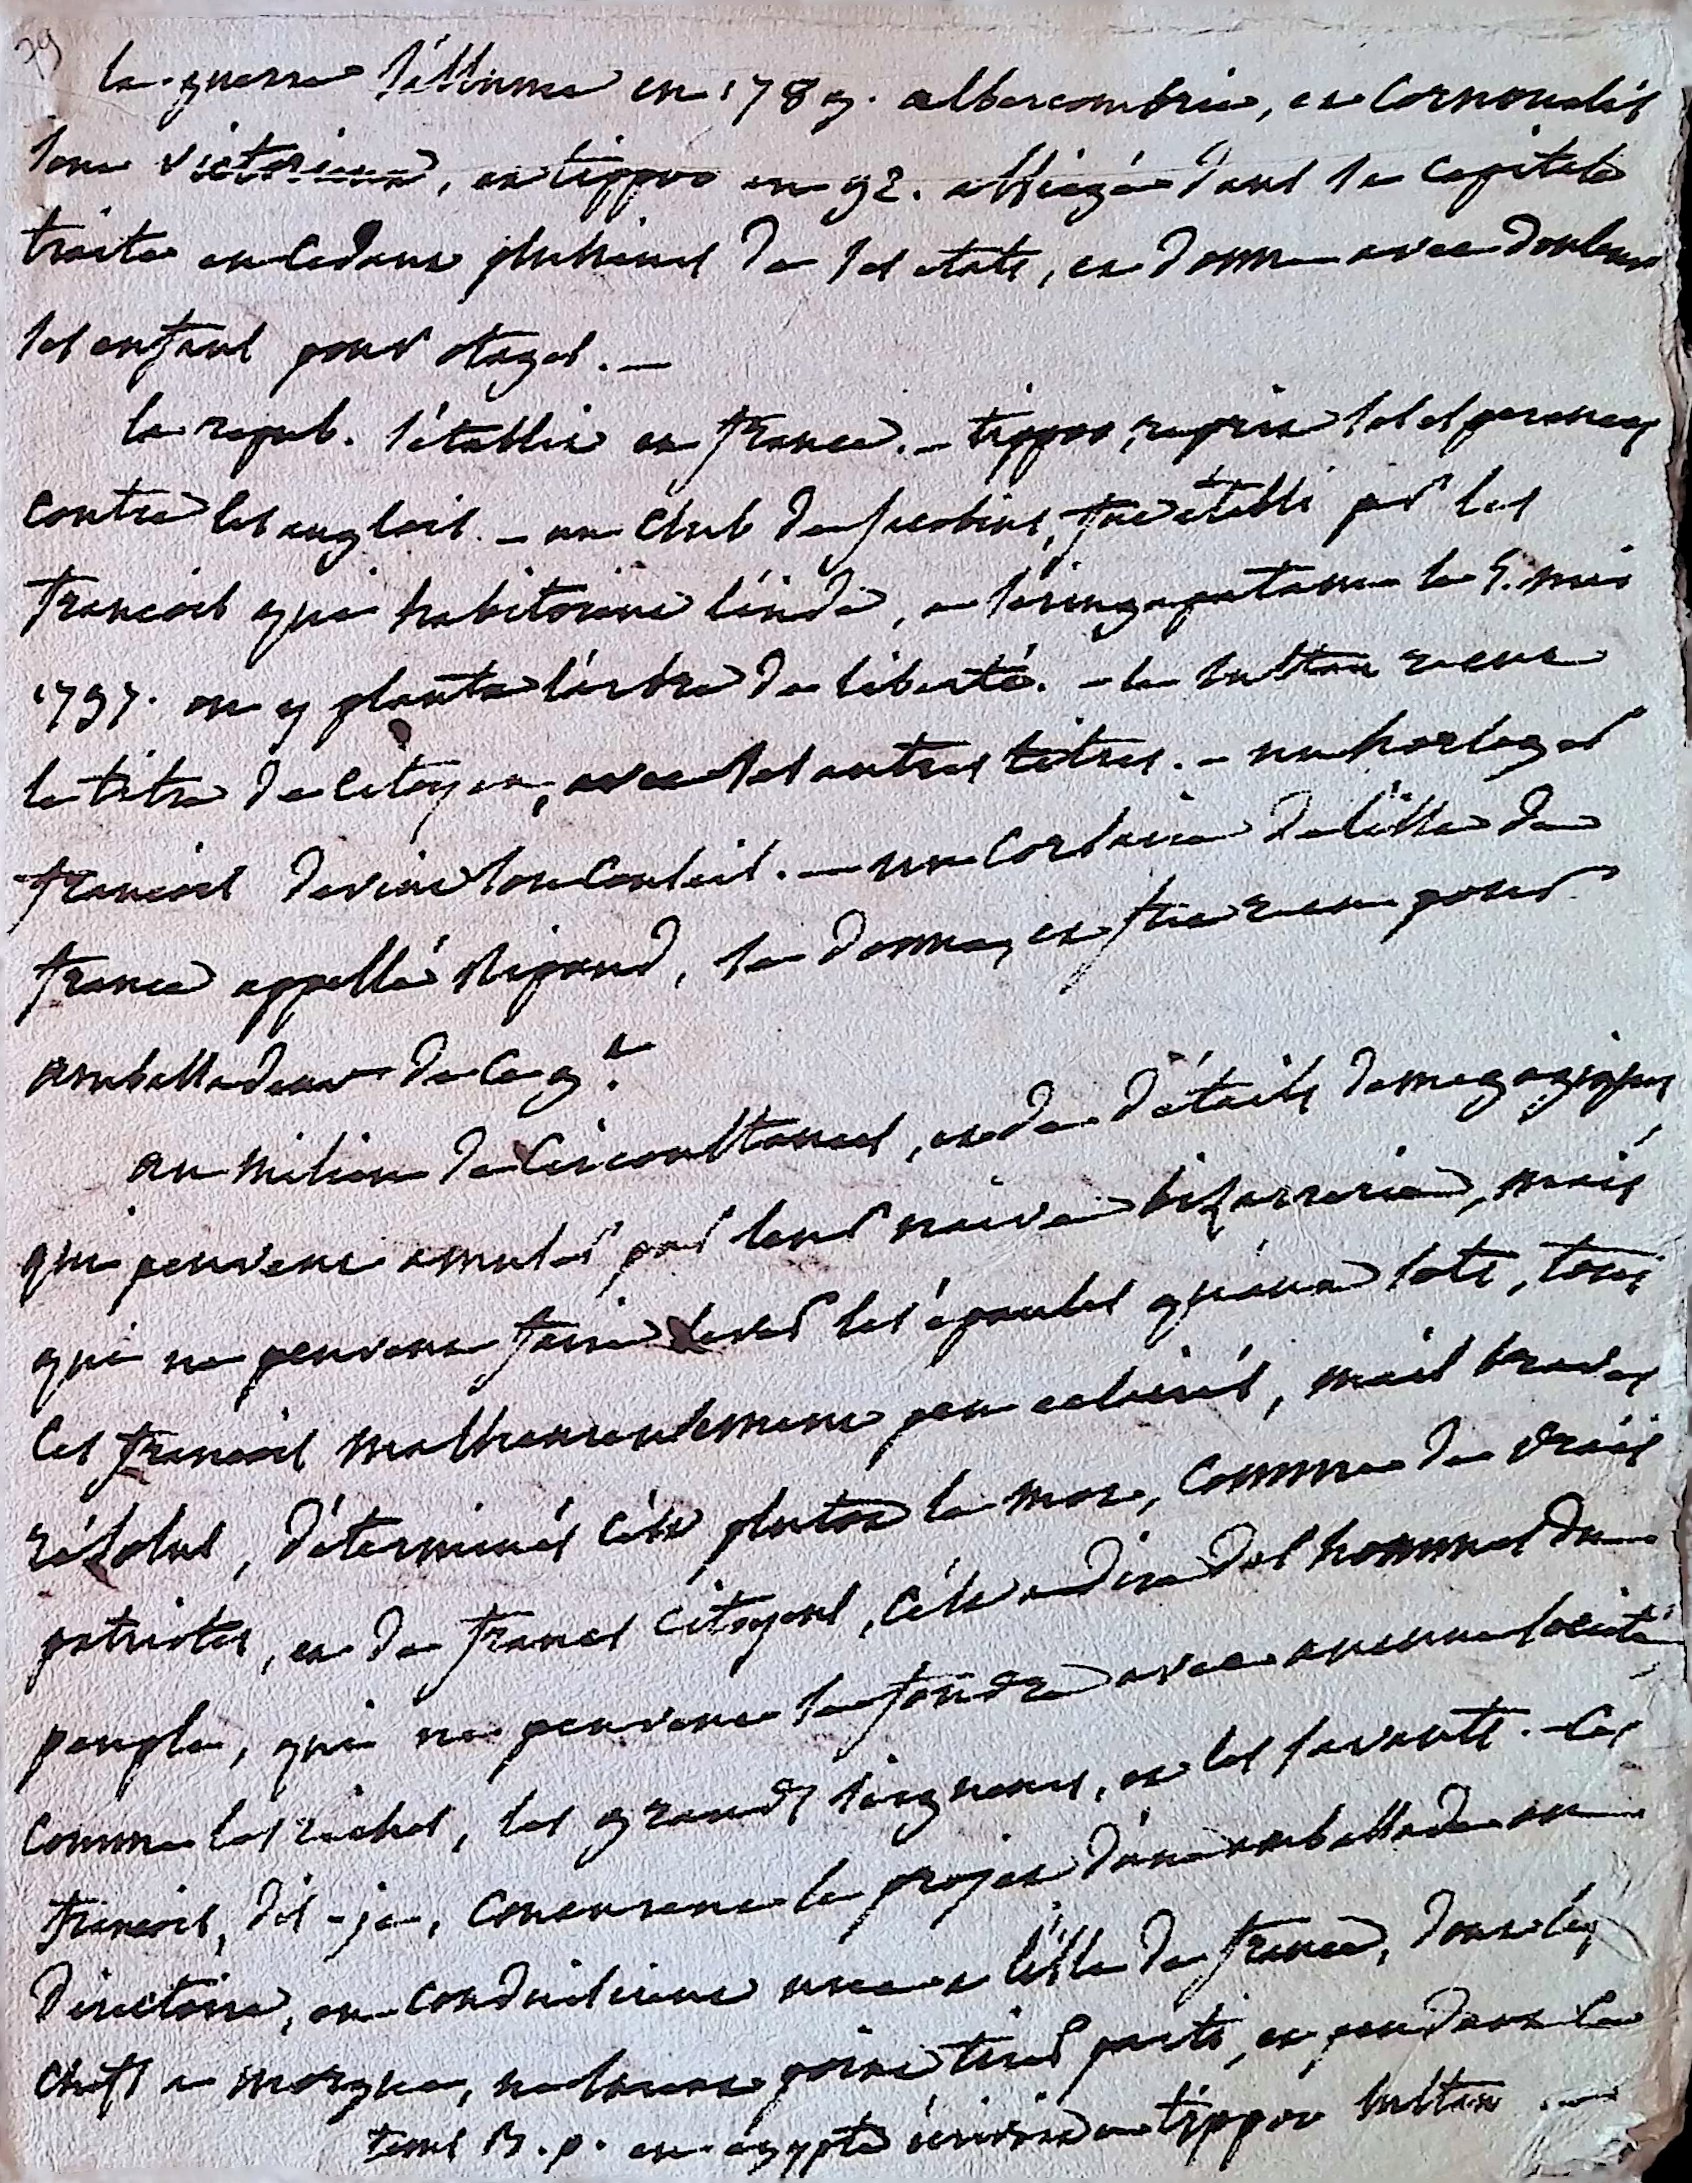 79
la guerre s'allume en 1789. albercombrie, et Cornoualis
sont victorieux, et tippoo en 92. assiégé dans sa capitale
traite en cedant plusieurs de ses etats, et donne avec douleur
ses enfans pour otages. —
la repub. s'etablit en france. — tippoo reprit ses esperances
contre les anglois. — un club de jacobins, fut établi par les
francois qui habitoient l'inde, a seringapatam le 5. mai
1797. on y planta l'arbre de liberté. — le sultan recut
le titre de citoyen, avec ses autres titres. — un horloger
francois devint son conseil. — un corsaire de l'isle de
france appellé Ripaud, se donna, et fut recu pour
ambassadeur de ce g.t
au milieu de circonstances, et de détails demagogiques
qui peuvent amuser par leur naive bizarrerie, mais
qui ne peuvent faire lever les épaules qu'aux sots, tous
ces francois malheureusement peu eclairés, mais braves
résolus, déterminés à plutot la mort, comme de vrais
patriotes, et de francs citoyens, c'est a dire des hommes du
peuple, qui ne peuvent se fondre avec aucune societé
comme les riches, les grands seigneurs, et les savants. — Ces
francois, dis-je, concurent le projet d'une ambassade au
directoire, et conduisirent a l'isle de france, dont les
chefs a morgue, ne surent point tirer parti, et pendant ce
tems B. p. en égypte écrivoit a tippoo sultan —